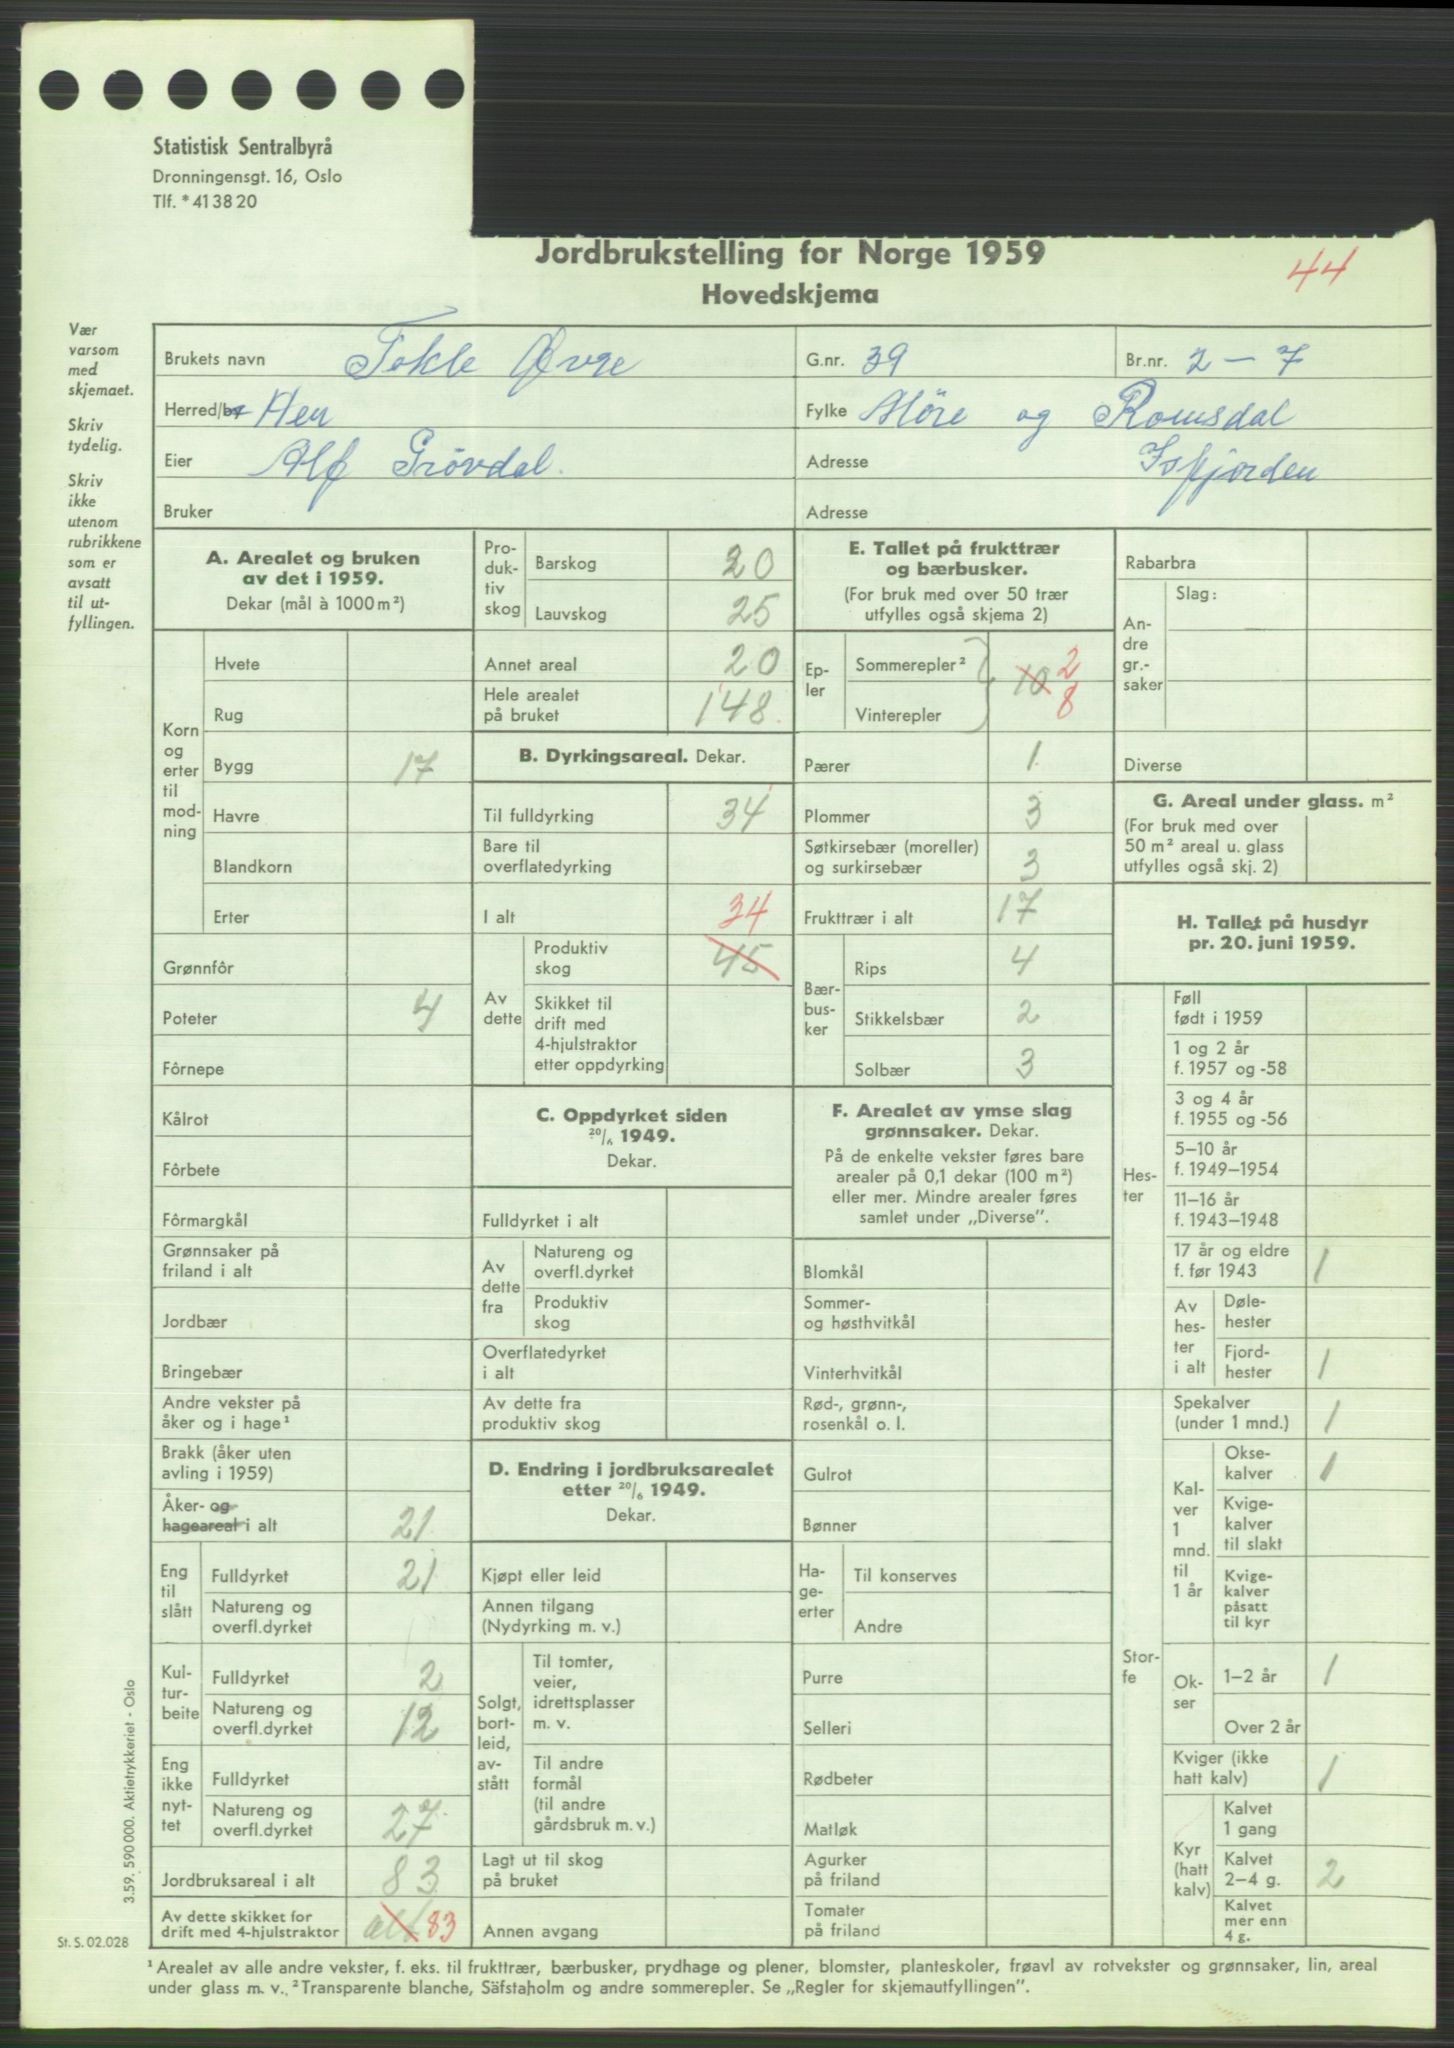 Statistisk Sentralbyrå
Dronningensgt. 16, Oslo
Tlf. * 41 38 20
Jordbrukstelling for Norge 1959
44
Hovedskjema
Vær varsom med skjemaet.
Skriv tydelig.
Skriv ikke utenom rubrikkene som er avsatt til utfyllingen.
Brukets navn Tokle Øvre G.nr. 39 Br.nr. 2 – 7
Herred/by Hen Fylke Möre og Romsdal
Eier Alf Grövdal. Adresse Isfjorden
Bruker Adresse
A. Arealet og bruken
av det i 1959.
Dekar (mål à 1000 m²)
Korn og erter til mod-ning
Hvete
Rug
Bygg 17
Havre
Blandkorn
Erter
Grønnfôr
Poteter 4
Fôrnepe
Kålrot
Fôrbete
Fôrmargkål
Grønnsaker på
friland i alt
Jordbær
Bringebær
Andre vekster på
åker og i hage¹
Brakk (åker uten
avling i 1959)
Åker- og
hageareal i alt 21
Eng til slått
Fulldyrket 21
Natureng og
overfl.dyrket
Kul-tur-beite
Fulldyrket 2
Natureng og
overfl.dyrket 12
Eng ikke nyt-tet
Fulldyrket
Natureng og
overfl.dyrket 27
Jordbruksareal i alt 83
Av dette skikket for
drift med 4-hjulstraktor alt 83
Pro-duk-tiv skog
Barskog 20
Lauvskog 25
Annet areal 20
Hele arealet
på bruket 148
B. Dyrkingsareal. Dekar.
Til fulldyrking 34
Bare til
overflatedyrking
I alt 34
Av dette
Produktiv
skog 45
Skikket til
drift med
4-hjulstraktor
etter oppdyrking
C. Oppdyrket siden
20/6 1949.
Dekar.
Fulldyrket i alt
Av dette fra
Natureng og
overfl.dyrket
Produktiv
skog
Overflatedyrket
i alt
Av dette fra
produktiv skog
D. Endring i jordbruksarealet
etter 20/6 1949.
Dekar.
Kjøpt eller leid
Annen tilgang
(Nydyrking m. v.)
Solgt, bort-leid, av-stått
Til tomter,
veier,
idrettsplasser
m. v.
Til andre
formål
(til andre
gårdsbruk m. v.)
Lagt ut til skog
på bruket
Annen avgang
E. Tallet på frukttrær
og bærbusker.
(For bruk med over 50 trær
utfylles også skjema 2)
Ep-ler
Sommerepler² 10 2
Vinterepler 8
Pærer 1
Plommer 3
Søtkirsebær (moreller)
og surkirsebær 3
Frukttrær i alt 17
Bær-bus-ker
Rips 4
Stikkelsbær 2
Solbær 3
F. Arealet av ymse slag
grønnsaker. Dekar.
På de enkelte vekster føres bare
arealer på 0,1 dekar (100 m²)
eller mer. Mindre arealer føres
samlet under „Diverse”.
Blomkål
Sommer-
og høsthvitkål
Vinterhvitkål
Rød-, grønn-,
rosenkål o. l.
Gulrot
Bønner
Ha-ge-erter
Til konserves
Andre
Purre
Selleri
Rødbeter
Matløk
Agurker
på friland
Tomater
på friland
Rabarbra
An-dre gr.-saker
Slag:
Diverse
G. Areal under glass. m²
(For bruk med over
50 m² areal u. glass
utfylles også skj. 2)
H. Tallet på husdyr
pr. 20. juni 1959.
Hes-ter
Føll
født i 1959
1 og 2 år
f. 1957 og -58
3 og 4 år
f. 1955 og -56
5–10 år
f. 1949–1954
11–16 år
f. 1943–1948
17 år og eldre
f. før 1943 1
Av hes-ter i alt
Døle-
hester
Fjord-
hester 1
Stor-fe
Spekalver
(under 1 mnd.) 1
Kal-ver 1 mnd. til 1 år
Okse-
kalver 1
Kvige-
kalver
til slakt
Kvige-
kalver
påsatt
til kyr
Ok-ser
1–2 år 1
Over 2 år
Kviger (ikke
hatt kalv) 1
Kyr (hatt kalv)
Kalvet
1 gang
Kalvet
2–4 g. 2
Kalvet
mer enn
4 g.
3.59. 590 000. Aktietrykkeriet - Oslo
St. S. 02.028
¹ Arealet av alle andre vekster, f. eks. til frukttrær, bærbusker, prydhage og plener, blomster, planteskoler, frøavl av rotvekster og grønnsaker, lin, areal
under glass m. v. ² Transparente blanche, Säfstaholm og andre sommerepler. Se „Regler for skjemautfyllingen”.